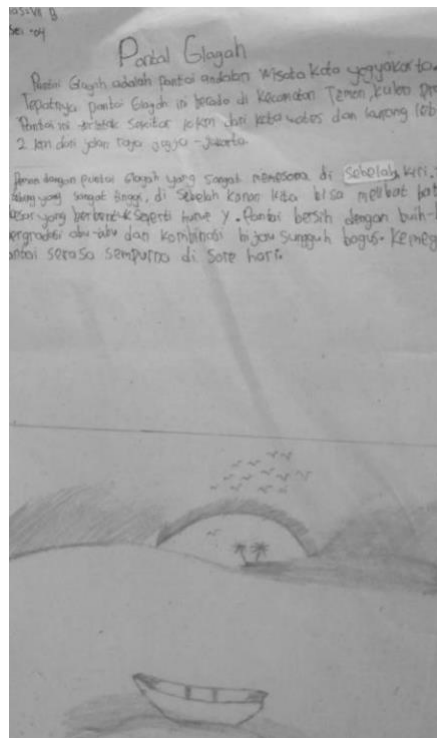 VII B
Pantai Glagah
Pantai Glagah adalah pantai andalan wisata kota yogyakarta.
Tepatnya pantai Glagah ini berada di Kecamatan Temon, kulon pro
Pantai ini terletak sekitar 10km dari kota wates dan kurang leb
2 km dari jalan raya Jogja-Jakarta.
Pemandangan pantai Glagah yang sangat mempesona di sebelah kiri.
tebing yang sangat tinggi, di sebelah kanan kita bisa melihat bat
besar yang berbentuk seperti huruf Y. Pantai bersih dengan buih-
bergradasi abu-abu dan kombinasi hijau sungguh bagus. Kemeg
antai serasa sempurna di sore hari.